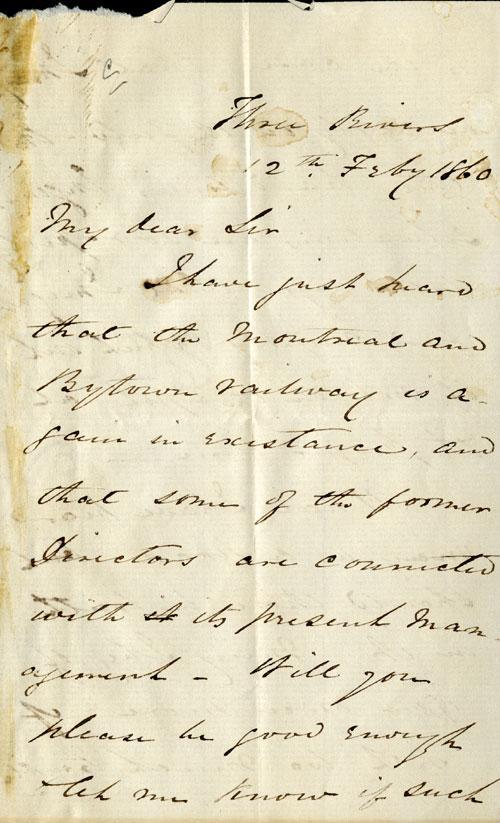 Three Rivers
12th. Feby 1860
My dear Sir
I have just heard
that the Montreal and
Bytown railway is a-
gain in existance, and
that some of the former
Directors are connected
with its present Man-
agement - Will you
please be good enough
let me know if such